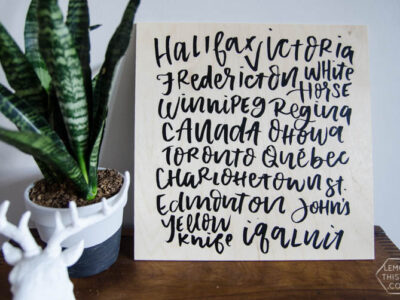 Halifax Victoria
Fredericton White
Horse
Winnipeg Regina
CANADA Ottawa
TORONTO Québec
Charlottetown St.
Edmonton John's
Yellow
Knife iqaluit
LEMO
THIS
.CO